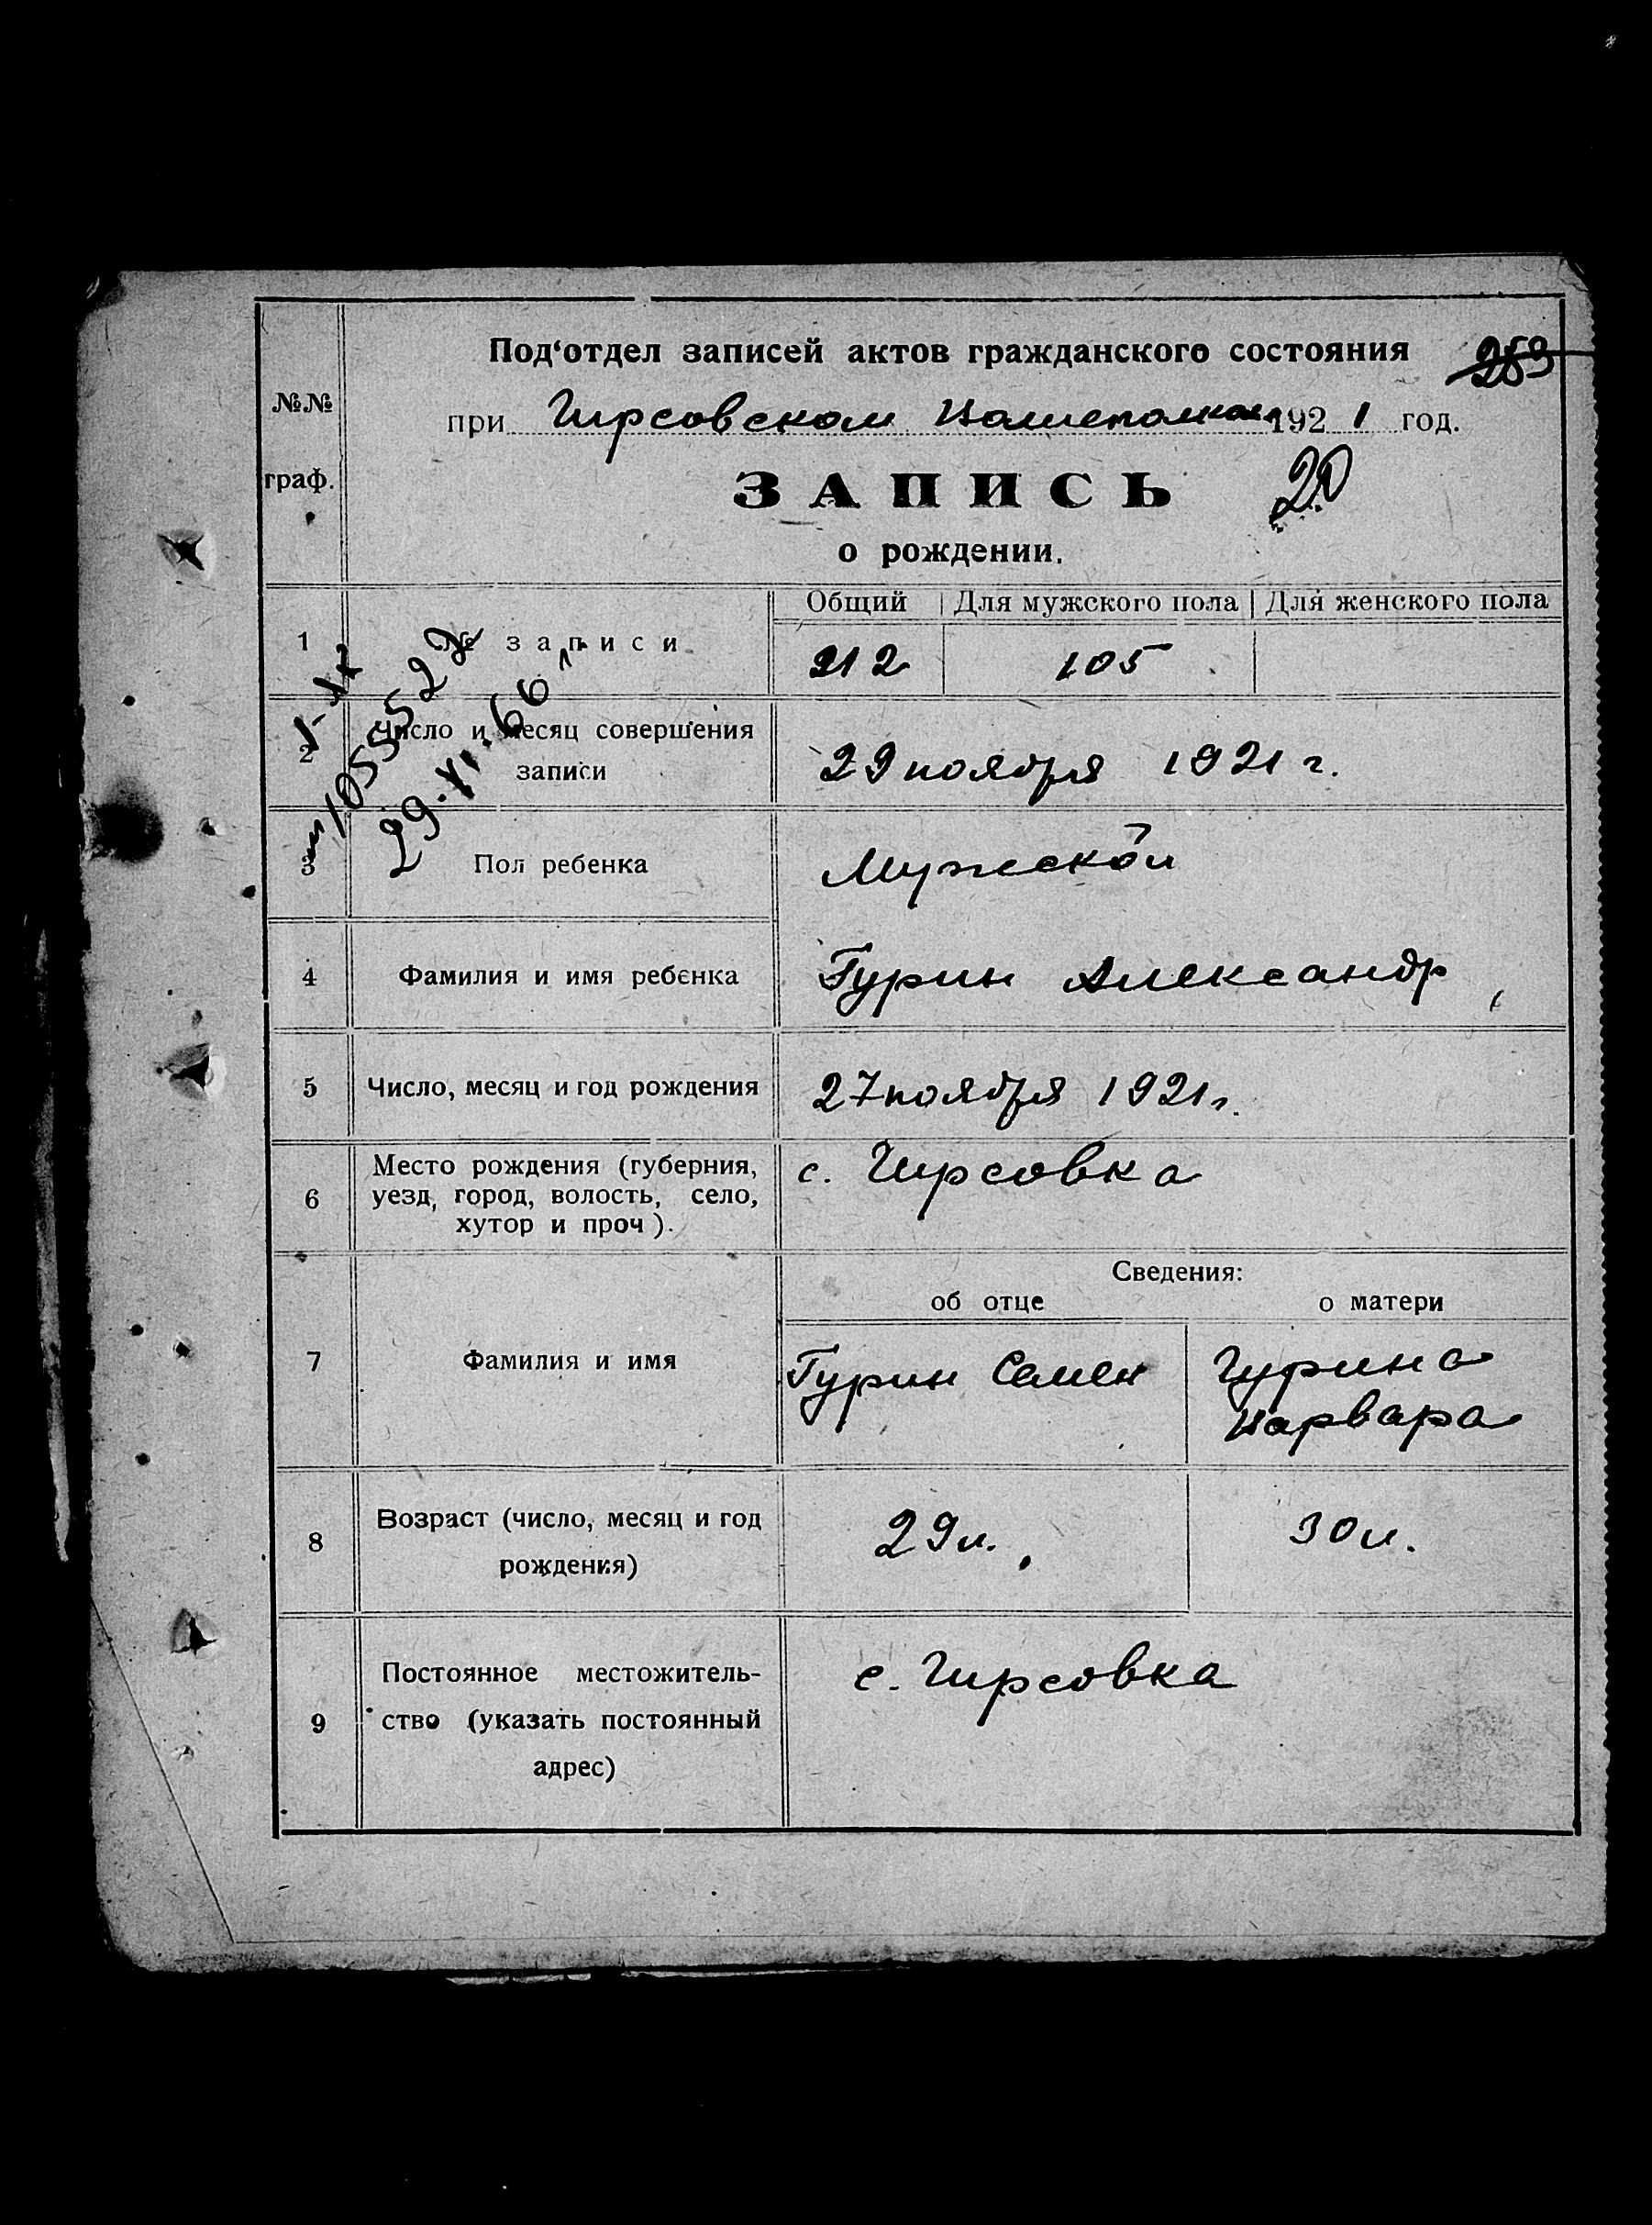 Под‘отдел записей актов гражданского состояния
259
№№
при Гирсовском 1921 год.
граф.
ЗАПИСЬ 20
о рождении.
Общий Для мужского пола Для женского пола
1 № записи 212 105
2 Число и месяц совершения записи
29 ноября 1921 г.
29.VI.66
3 Пол ребенка Мужской
4 Фамилия и имя ребенка Гурин Александр
5 Число, месяц и год рождения 27 ноября 1921 г.
6 Место рождения (губерния,
уезд, город, волость, село,
хутор и проч).
с. Гирсовка
Сведения:
об отце о матери
7 Фамилия и имя Гурин Семен Гурина
Варвара
8 Возраст (число, месяц и год
рождения)
29 л. 30 л.
9 Постоянное местожитель-
ство (указать постоянный
адрес)
с. Гирсовка